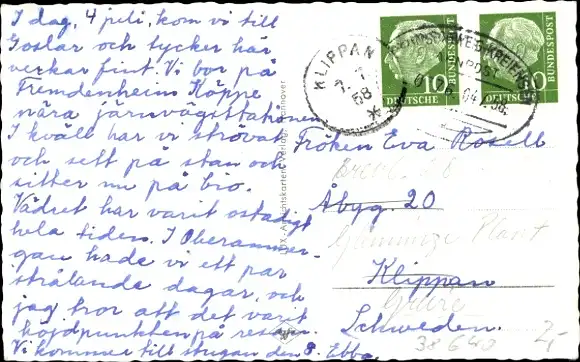 I dag, 4 juli, kom vi till
Goslar och tycker här
verkar fint. Vi bor på
Fremdenheim Köppe
nära järnvägsstationen
I kväll har vi strövat
och sett på stan och
sitter nu på bio.
Vädret har varit ostadigt
hela tiden. I Oberammer-
gau hade vi ett par
strålande dagar, och
jag tror att det varit
höjdpunkten på resan.
Vi kommer till stugan den 8. Ebba
KLIPPAN
10
DEUTSCHE
BUNDESPOST
10
DEUTSCHE
BUNDESPOST
Ansichtskarten-Verlag, Hannover
Fröken Eva Rosell
Åbyg. 20
Klippan
Schweden.
38640